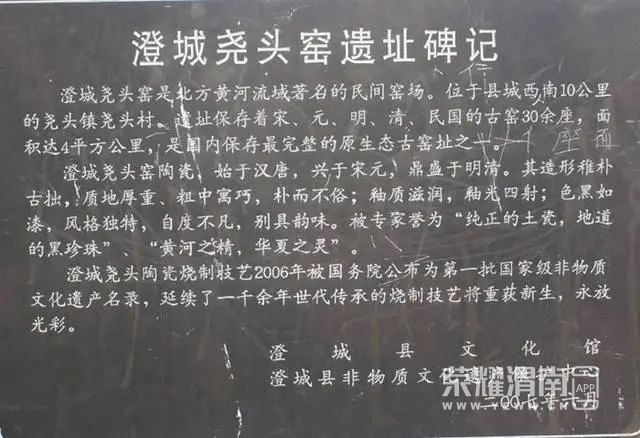 澄城尧头窑遗址碑记
澄城尧头窑是北方黄河流域著名的民间窑场。位于县城西南10公里
的尧头镇尧头村。遗址保存着宋、元、明、清、民国的古窑30余座，面
积达4平方公里，是国内保存最完整的原生态古窑址之一。
澄城尧头窑陶瓷，始于汉唐，兴于宋元，鼎盛于明清。其造形稚朴
古拙，质地厚重、粗中寓巧，朴而不俗；釉质滋润，釉光四射；色黑如
漆，风格独特，自度不凡，别具韵味。被专家誉为“纯正的土瓷，地道
的黑珍珠”、“黄河之精，华夏之灵”。
澄城尧头陶瓷烧制技艺2006年被国务院公布为第一批国家级非物质
文化遗产名录，延续了一千余年世代传承的烧制技艺将重获新生，永放
光彩。
澄城县文化馆
澄城县非物质文化遗产保护中心
二00七年六月
荣耀渭南 APP